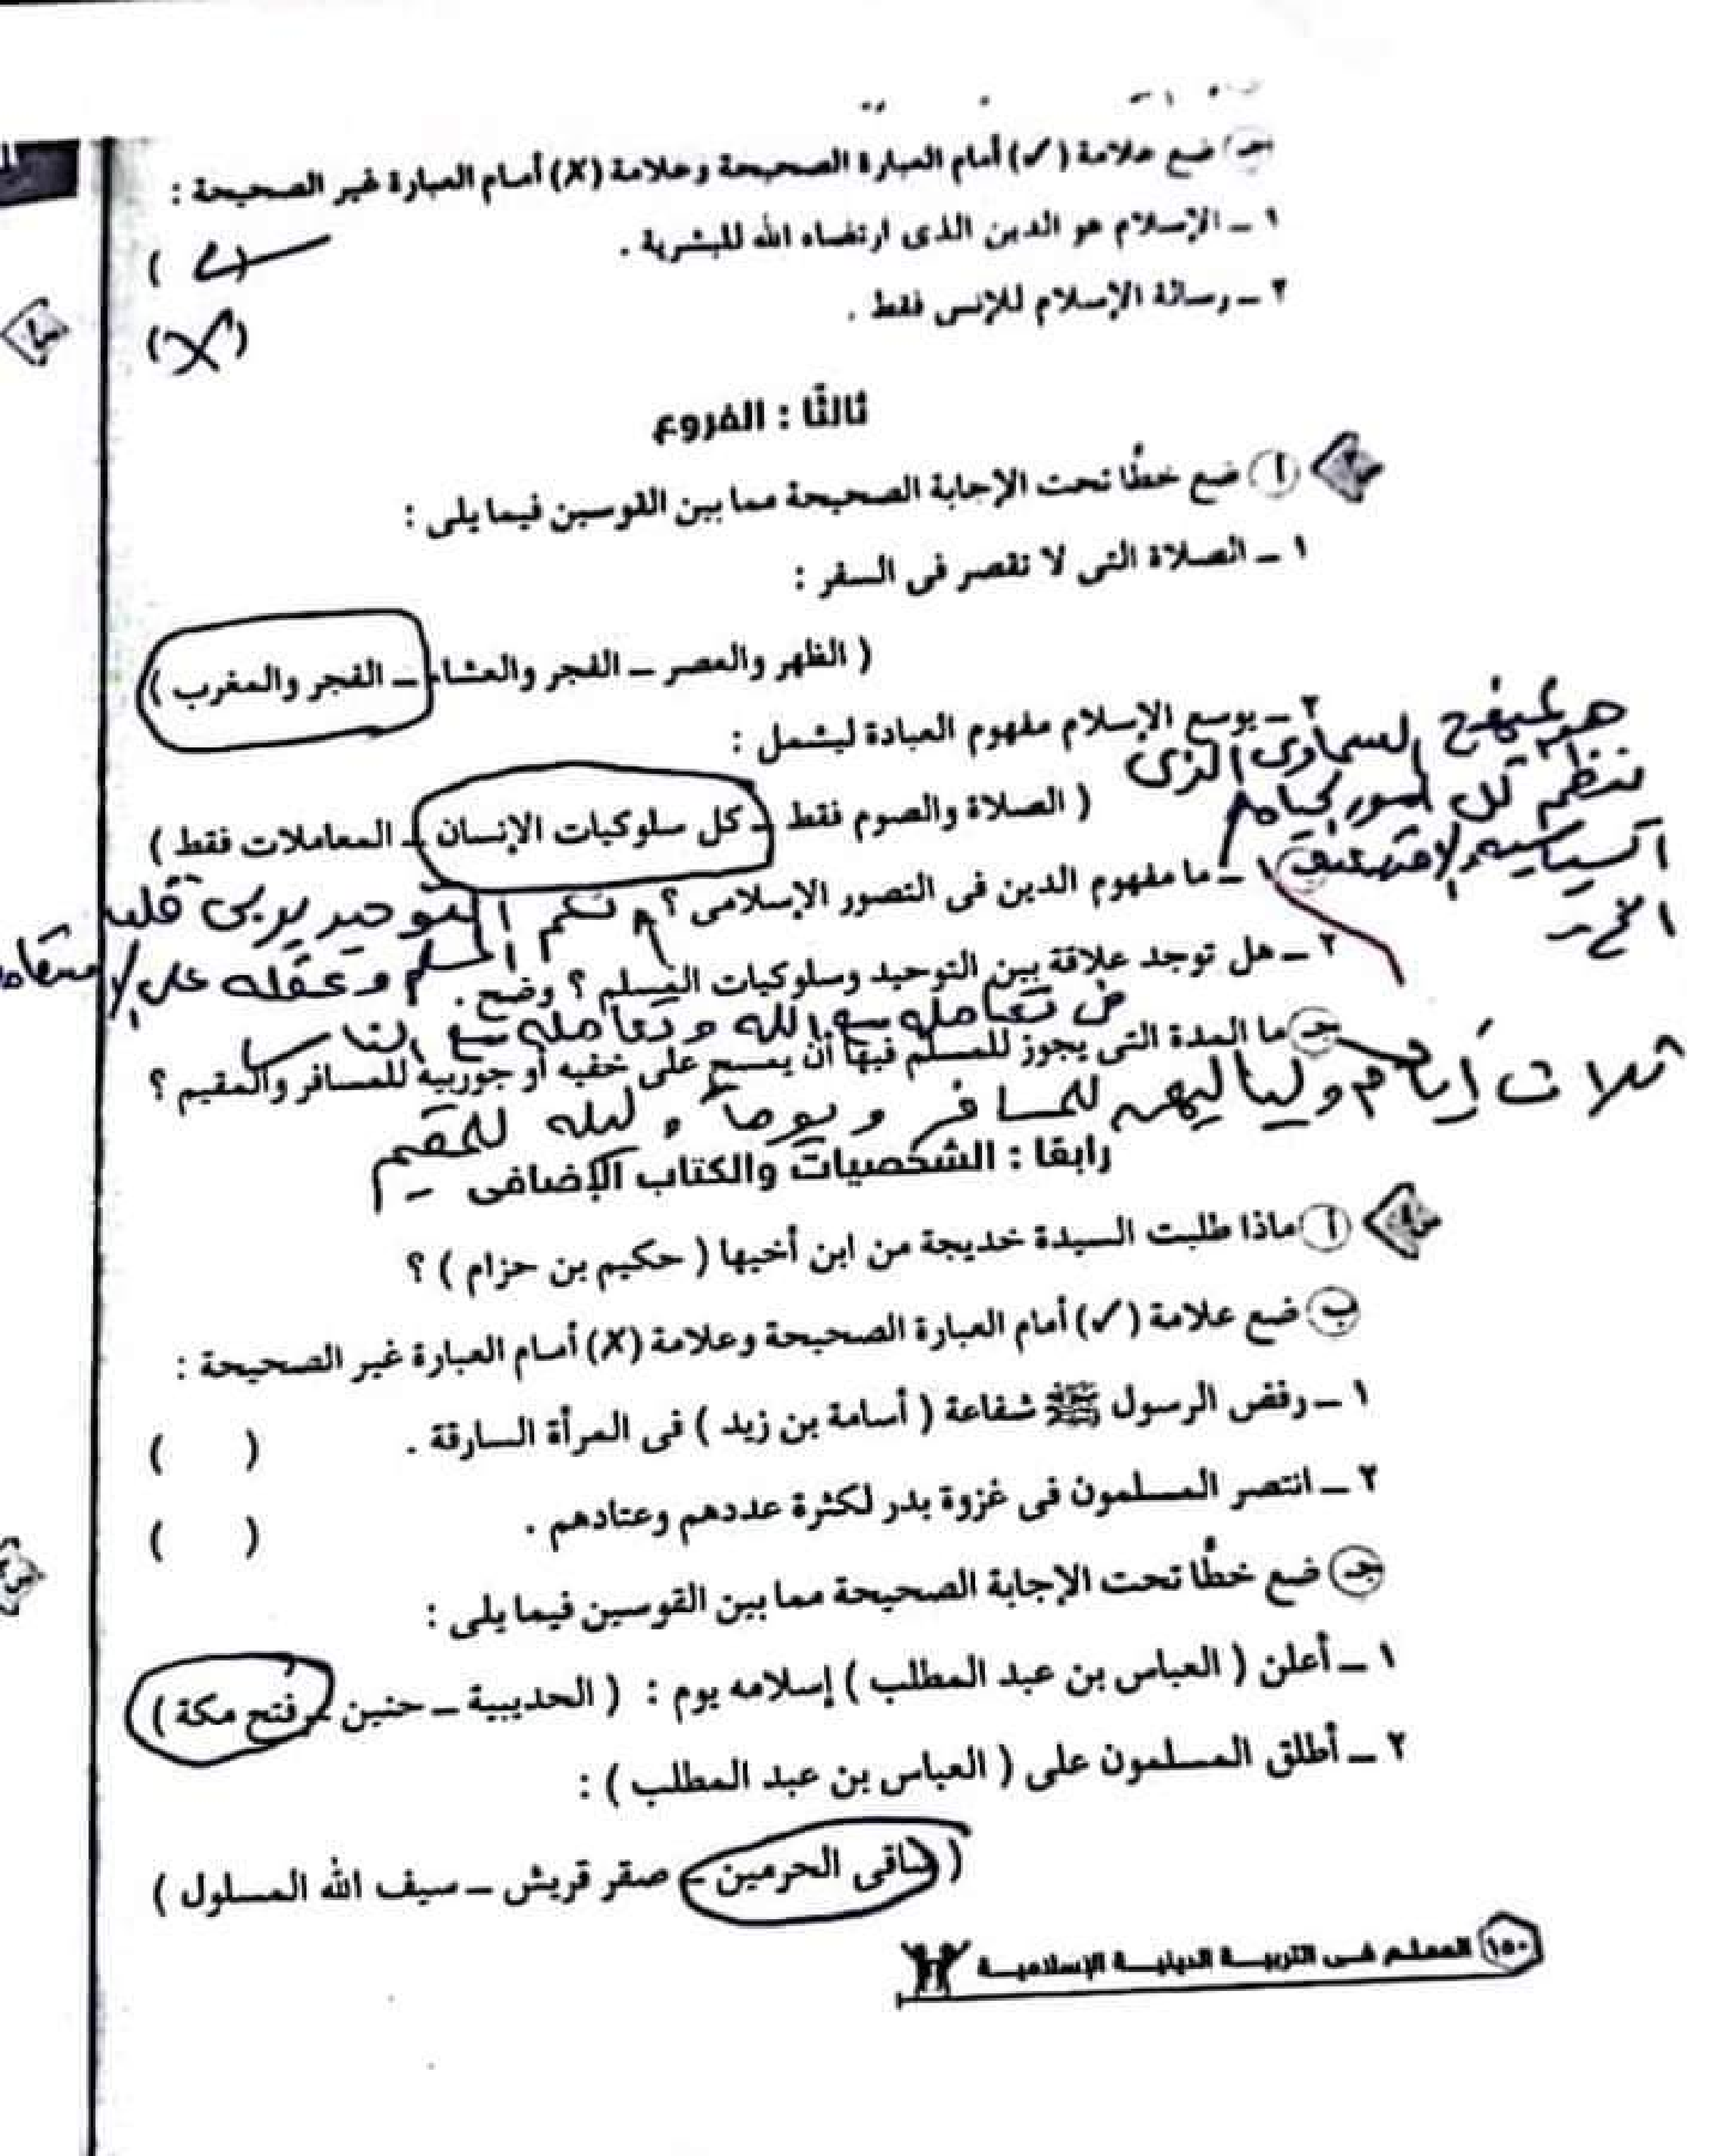 جـ ضع علامة (✓) أمام العبارة الصحيحة وعلامة (X) أمام العبارة غير الصحيحة :
١ ـ الإسلام هو الدين الذى ارتضاه الله للبشرية . ( ✓ )
٢ ـ رسالة الإسلام للإنس فقط . (X)
ثالثًا : الفروع
أ ضع خطًا تحت الإجابة الصحيحة مما بين القوسين فيما يلى :
١ ـ الصلاة التى لا تقصر فى السفر :
( الظهر والعصر ـ الفجر والعشاء ـ الفجر والمغرب )
٢ ـ يوسع الإسلام مفهوم العبادة ليشمل :
هو المنهج السماوى الذى
ينظم كل أمور الحياه
( الصلاة والصوم فقط ـ كل سلوكيات الإنسان ـ المعاملات فقط )
السياسيه والإقتصاديه
الخ
١ ـ ما مفهوم الدين فى التصور الإسلامى ؟
نعم التوحيد يربى قلب
٢ ـ هل توجد علاقة بين التوحيد وسلوكيات المسلم ؟ وضح .
المسلم وعقله على الإستقامه
فى تعامله مع الله وتعامله مع الناس
جـ ما المدة التى يجوز للمسلم فيها أن يمسح على خفيه أو جوربيه للمسافر والمقيم ؟
ثلاث أيام ولياليهن للمسافر ويوماً وليله للمقيم
رابعًا : الشخصيات والكتاب الإضافى
أ ماذا طلبت السيدة خديجة من ابن أخيها ( حكيم بن حزام ) ؟
ب ضع علامة (✓) أمام العبارة الصحيحة وعلامة (X) أمام العبارة غير الصحيحة :
١ ـ رفض الرسول ﷺ شفاعة ( أسامة بن زيد ) فى المرأة السارقة . ( )
٢ ـ انتصر المسلمون فى غزوة بدر لكثرة عددهم وعتادهم . ( )
جـ ضع خطًا تحت الإجابة الصحيحة مما بين القوسين فيما يلى :
١ ـ أعلن ( العباس بن عبد المطلب ) إسلامه يوم : ( الحديبية ـ حنين ـ فتح مكة )
٢ ـ أطلق المسلمون على ( العباس بن عبد المطلب ) :
( ساقى الحرمين ـ صقر قريش ـ سيف الله المسلول )
١٥٠ المعلم فى التربية الدينية الإسلامية